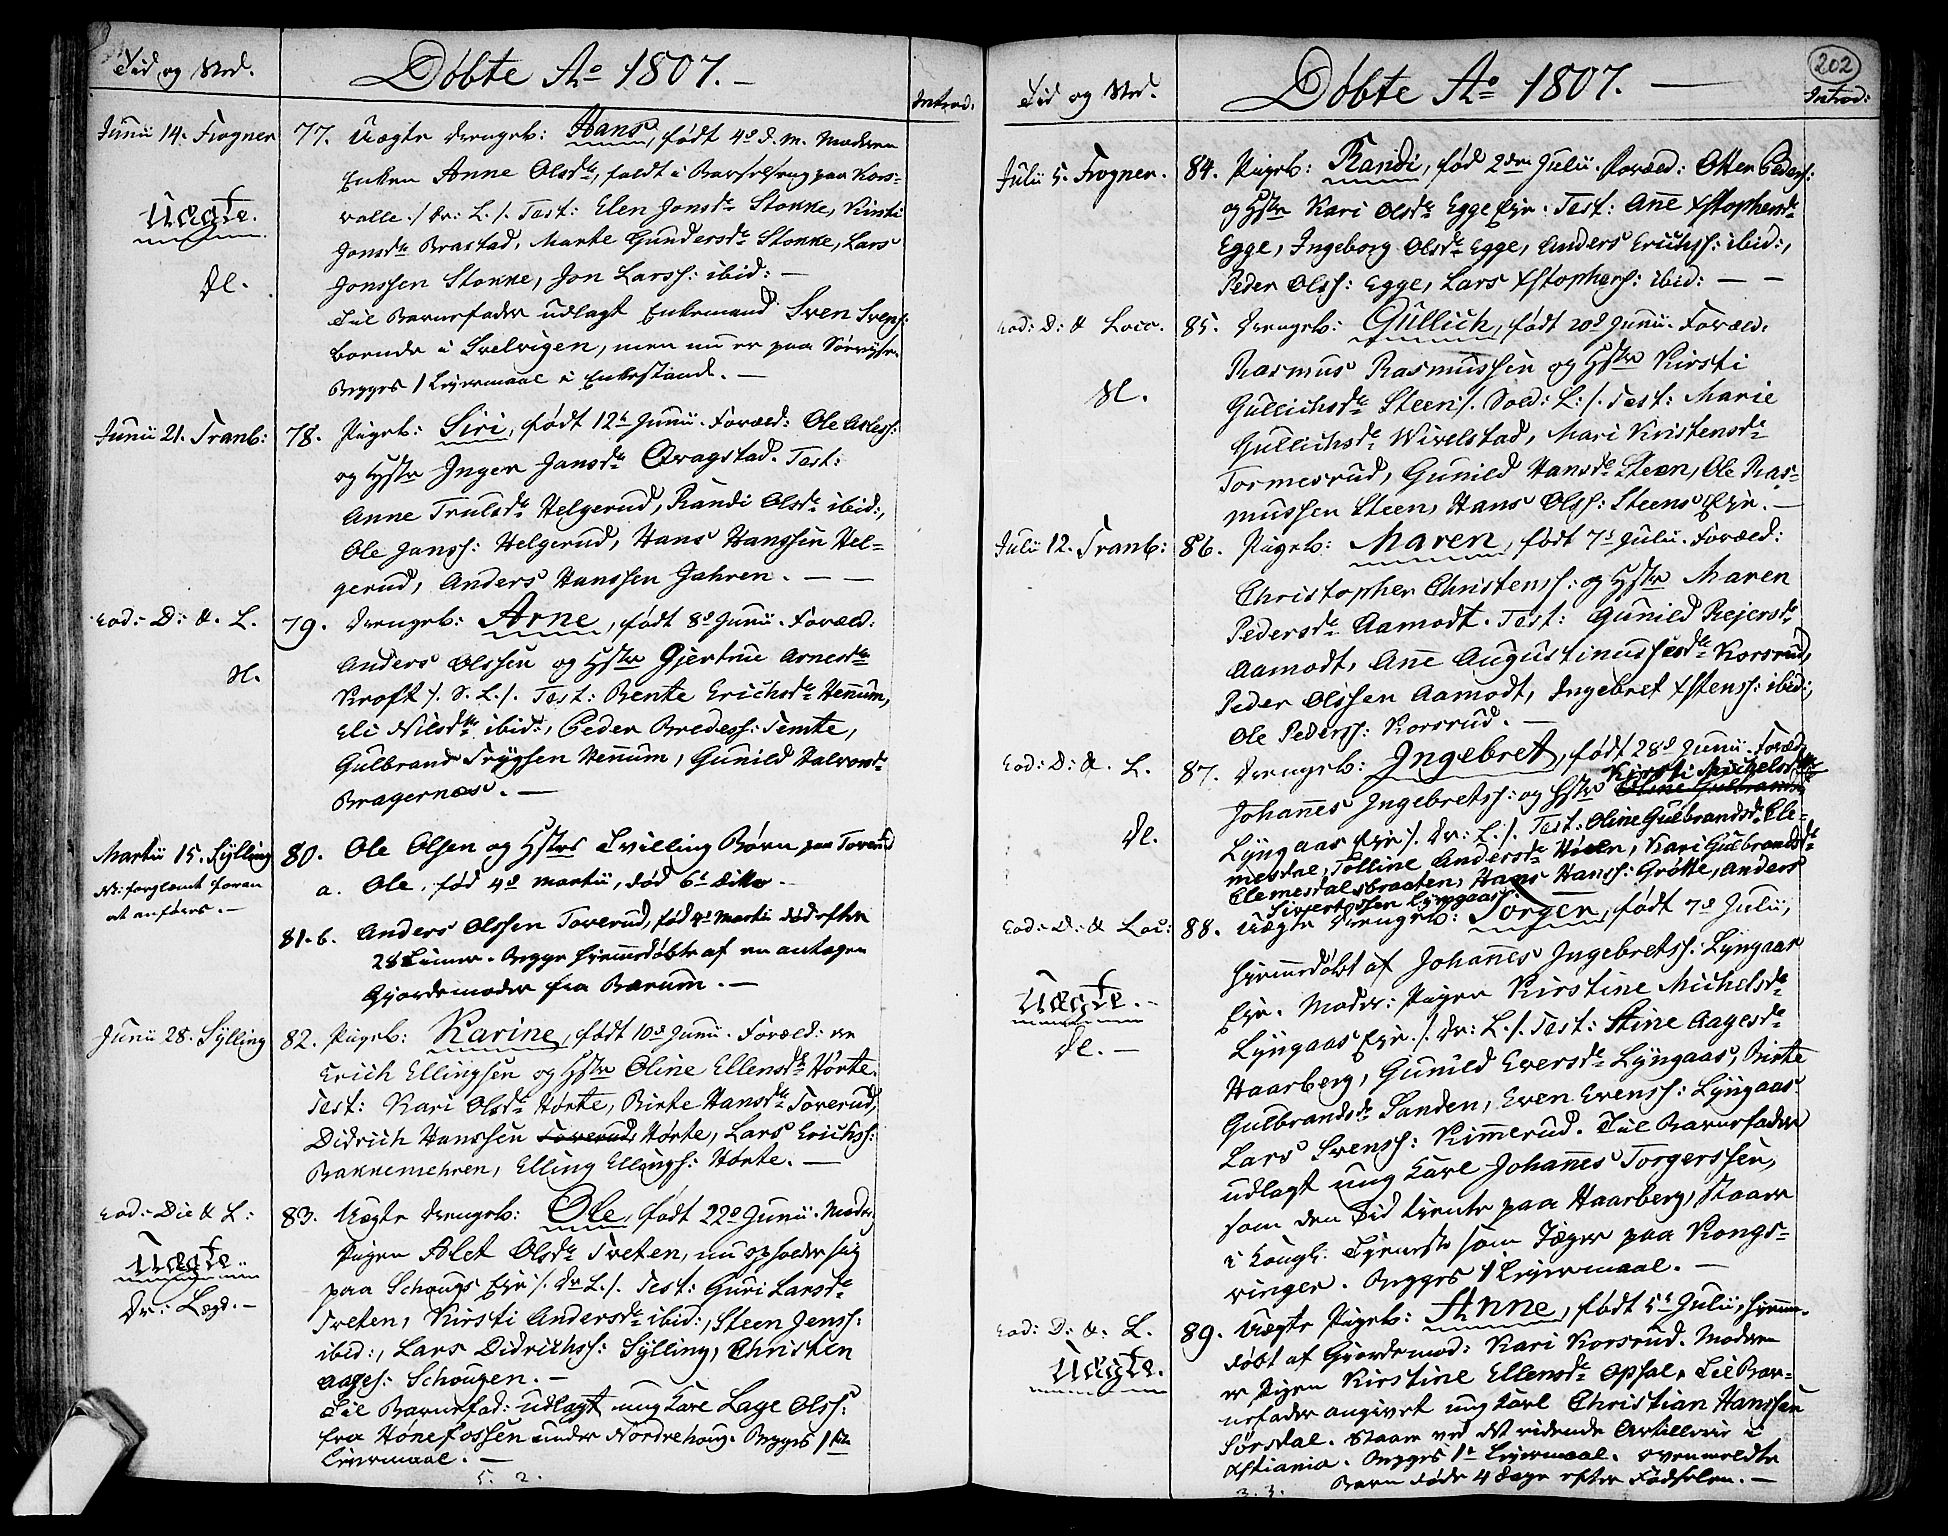 Tid og Sted.
Døbte Ao 1807. —
Introd:
Junii 14. Frogner
77. Uægte drengeb: Hans, født 4de d. M. Moderen
Enken Anne Olsdr, faldt i Barselseng paa Kors-
valle ./. Dr: L./. Test: Elen Jonsdr Stokke, Kirsti
Uægte.
Jonsdr Brastad, Marte Gundersdr Stokke, Lars
Jonssen Stokke, Jon Larss: ibid: —
Dl.
Til Barnefader udlagt Enkemand Sven Svens:
boende i Svelvigen, men nu er paa
Begges 1 Leiermaal i Enkestand. —
Junii 21. Tranb:
78. Pigeb: Siri, født 12te Junii. Foræld: Ole Oless:
og Hstr Inger Jansdr Qvagstad. Test:
Anne Trulsdr Helgerud, Randi Olsdr ibid:,
Ole Janss: Helgerud, Hans Hanssen Hel-
gerud, Anders Hanssen Jahren. — —
Eod: D: & L.
79. Drengeb: Arne, født 8de Junii. Foræld:
Anders Olssen og Hstr Gjertrue Arnesdr
Dl.
Kroft ./. S. L./. Test: Bente Erichsdr Hennum,
Eli Nilsdr ibid:, Peder Bredess: Temte,
Gulbrand Trygsen Hennum, Gunild Halvorsdr
Bragernæs. —
Martii 15. Sylling
NB: forglemt foran
at anføres. —
80. Ole Olsen og Hstrs Tvilling Børn paa Toverud
a. Ole, fød 4de Martii, død 6te ditto —
81. b. Anders Olssen Toverud, fød 4de Martii død efter
28 Timer. Begge hjemmedøbte af en antagen
Gjordemoder fra Bærum. —
Junii 28. Sylling
82. Pigeb: Karine, født 10de Junii. Foræld: er
Erich Ellingsen og Hstr Oline Ellensdr Hørte.
Test: Kari Olsdr Hørte, Birte Hansdr Toverud,
Didrich Hanssen Toverud Hørte, Lars Erichss:
Bakkemehren, Elling Ellings: Hørte. —
Eod: Die & L:
83. Uægte drengeb: Ole, født 22de Junii. Moder
Pigen Alet Olsdr Tveten, nu opholder sig
Uægte.
paa Schougs Eje ./. Dr L./. Test: Guri Larsdr
Dr: Lægd. —
Tveten, Kirsti Andersdr ibid:, Steen Jenss:
ibid:, Lars Didrichss: Sylling, Christen
Aages: Schougen. —
Til Barnefad: udlagt ung Karl Lage Olss:
fra Hønefossen under Nordrehoug. Begges 1ste
Leiermaal. —
5. 2.
202
Tid og Sted.
Døbte Ao 1807. —
Introd:
Julii 5. Frogner.
84. Pigeb: Randi, fød 2den Julii. Foræld: Otter Peders:
og Hstr Kari Olsdr Egge Eje. Test: Ane Xstophersdr
Egge, Ingeborg Olsdr Egge, Anders Erichss: ibid:,
Peder Olss: Egge, Lars Xstophers: ibid: — —
Eod: D: & Loco.
85. Drengeb: Gullich, født 20d Junii. Foræld:
Rasmus Rasmussen og Hstr Kirsti
Dl.
Gullichsdr Steen ./. Sold: L:/. Test: Marie
Gullichsdr Wivelstad, Mari Kristensdr
Tormesrud, Gunild Hansdr Steen, Ole Ras-
mussen Steen, Hans Olss: Steens Eje. —
Julii 12. Tranb:
86. Pigeb: Maren, født 7de Julii. Foræld:
Christopher Christens: og Hstr Maren
Pedersdr Aamodt. Test: Gunild Rejersdr
Aamodt, Ane Augustinussesdr Korsrud,
Peder Olssen Aamodt, Ingebret Xstenss: ibid:,
Ole Pederss: Korsrud. —
Eod: D: & L.
87. Drengeb: Ingebret, født 28d Junii. Foræld
Kirsti Michelsdr
Johannes Ingebretss: og Hstr Oline Gulbrands
Dl.
Lyngaas Eje ./. Dr: L./. Test: Oline Gulbrandsdr Cle-
mesdal, Tolline Andersdr Hien, Kari Gulbrandsdr
Clemesdalsbraaten, Hans Hanss: Grøtte, Anders
Sivertssen Lyngaas:
Eod: D: & Loc:
88. Uægte drengeb: Torger, født 7de Julii,
hjemmedøbt af Johannes Ingebretss: Lyngaas
Uægte. —
Eje. Moder: Pigen Kirstine Michelsdr
Dl. —
Lyngaas Eje ./. Dr: L./. Test: Stine Aagesdr
Haarberg, Gunild Eversdr Lyngaas, Birte
Gulbrandsdr Sanden, Even Evenss: Lyngaas
Lars Svenss: Kimerud. Til Barnefader
udlagt ung Karl Johannes Torgerssen,
som den Tid tjente paa Haarberg, staaer
i Kongl: Tjeneste som Jæger paa Kongs-
vinger. Begges 1 Leiermaal. —
Eod: D: & L.
89. Uægte Pigeb: Anne, født 5te Julii, hjemme-
døbt af Gjordemod: Kari Korsrud. Moderen
Uægte.
er Pigen Kirstine Ellensdr Opsal. Til Bar-
nefader angivet ung Karl Christian Hanssen
Sørsdal. Staaer ved det ridende Artillerie i
Xstiania. Begges 1te Leiermaal. ovenmeldte
Barn døde 4 Dage efter Fødselen. —
3. 3.